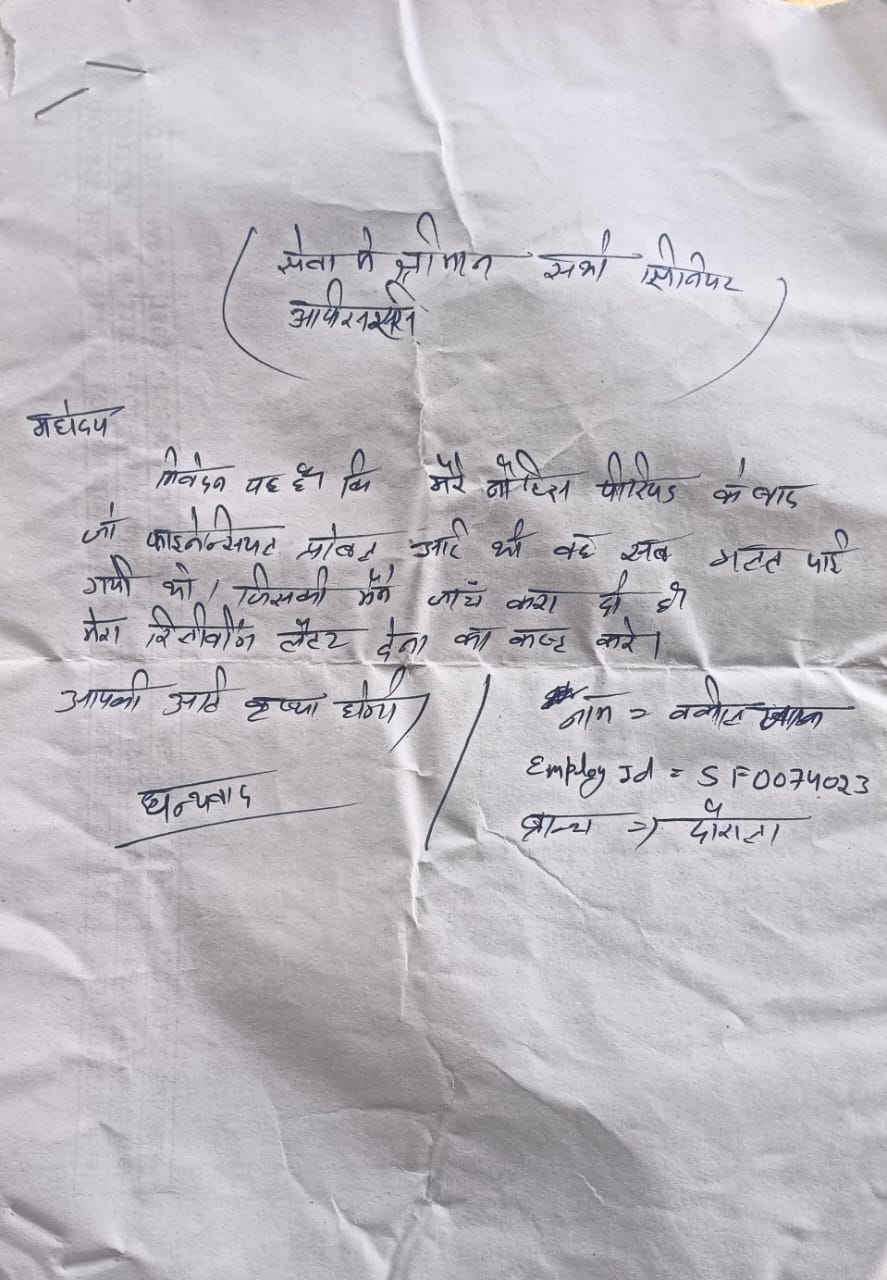 सेवा मे श्रीमान सभी सिनियर
आफिसर्स
महोदय
निवेदन यह है। कि मेरे नोटिस पीरियड के बाद
जो फाइनेन्सियल प्रोबल्म आई थी वह सब गलत पाई
गयी थी। जिसकी मैने जाचँ करा दी है
मेरा रिलीवींग लैटर देना का कष्ट करे।
आपकी अति कृप्या होगी
नाम = वकील खान
Employ Id = SF0074023
धन्यवाद
ब्रान्च => दौराला